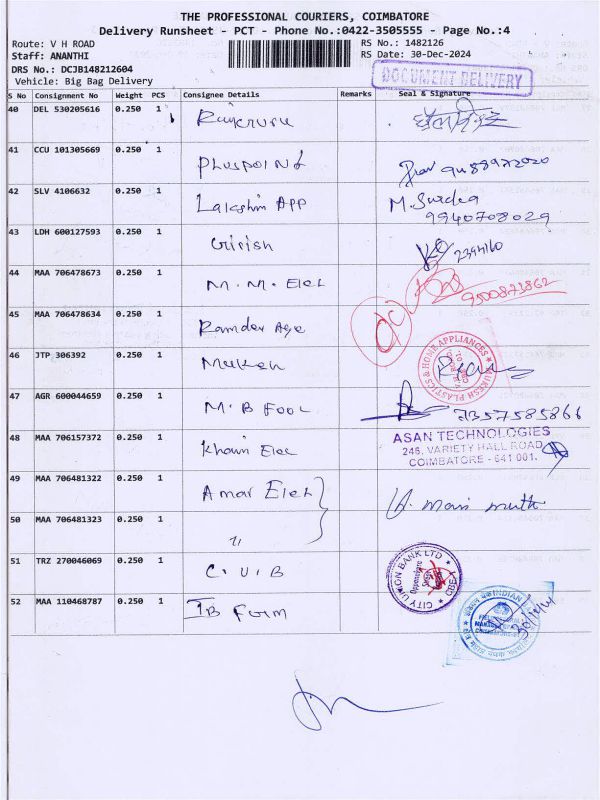 THE PROFESSIONAL COURIERS, COIMBATORE
Delivery Runsheet - PCT - Phone No.:0422-3505555 - Page No.:4
Route: V H ROAD
RS No.: 1482126
Staff: ANANTHI
RS Date: 30-Dec-2024
DRS No.: DCJB148212604
Vehicle: Big Bag Delivery
DOCUMENT DELIVERY
S No Consignment No Weight PCS Consignee Details Remarks Seal & Signature
40 DEL 530205616 0.250 1
41 CCU 101305669 0.250 1 Pluspoint 9488972020
42 SLV 4106632 0.250 1 Lakshmi APP M.
9940708029
43 LDH 600127593 0.250 1 Girish
44 MAA 706478673 0.250 1 M. M. Elec
9500871862
45 MAA 706478634 0.250 1 Ramdev Age
46 JTP 306392 0.250 1
MUKESH PLASTICS & HOME APPLIANCES
47 AGR 600044659 0.250 1 M. B Fool 7357585866
48 MAA 706157372 0.250 1 Khawn Elec
ASAN TECHNOLOGIES
246, VARIETY HALL ROAD
COIMBATORE - 641 001.
49 MAA 706481322 0.250 1 Amar Elec
50 MAA 706481323 0.250 1 "
51 TRZ 270046069 0.250 1 C. U. B
CITY UNION BANK LTD
52 MAA 110468787 0.250 1 IB Form
INDIAN